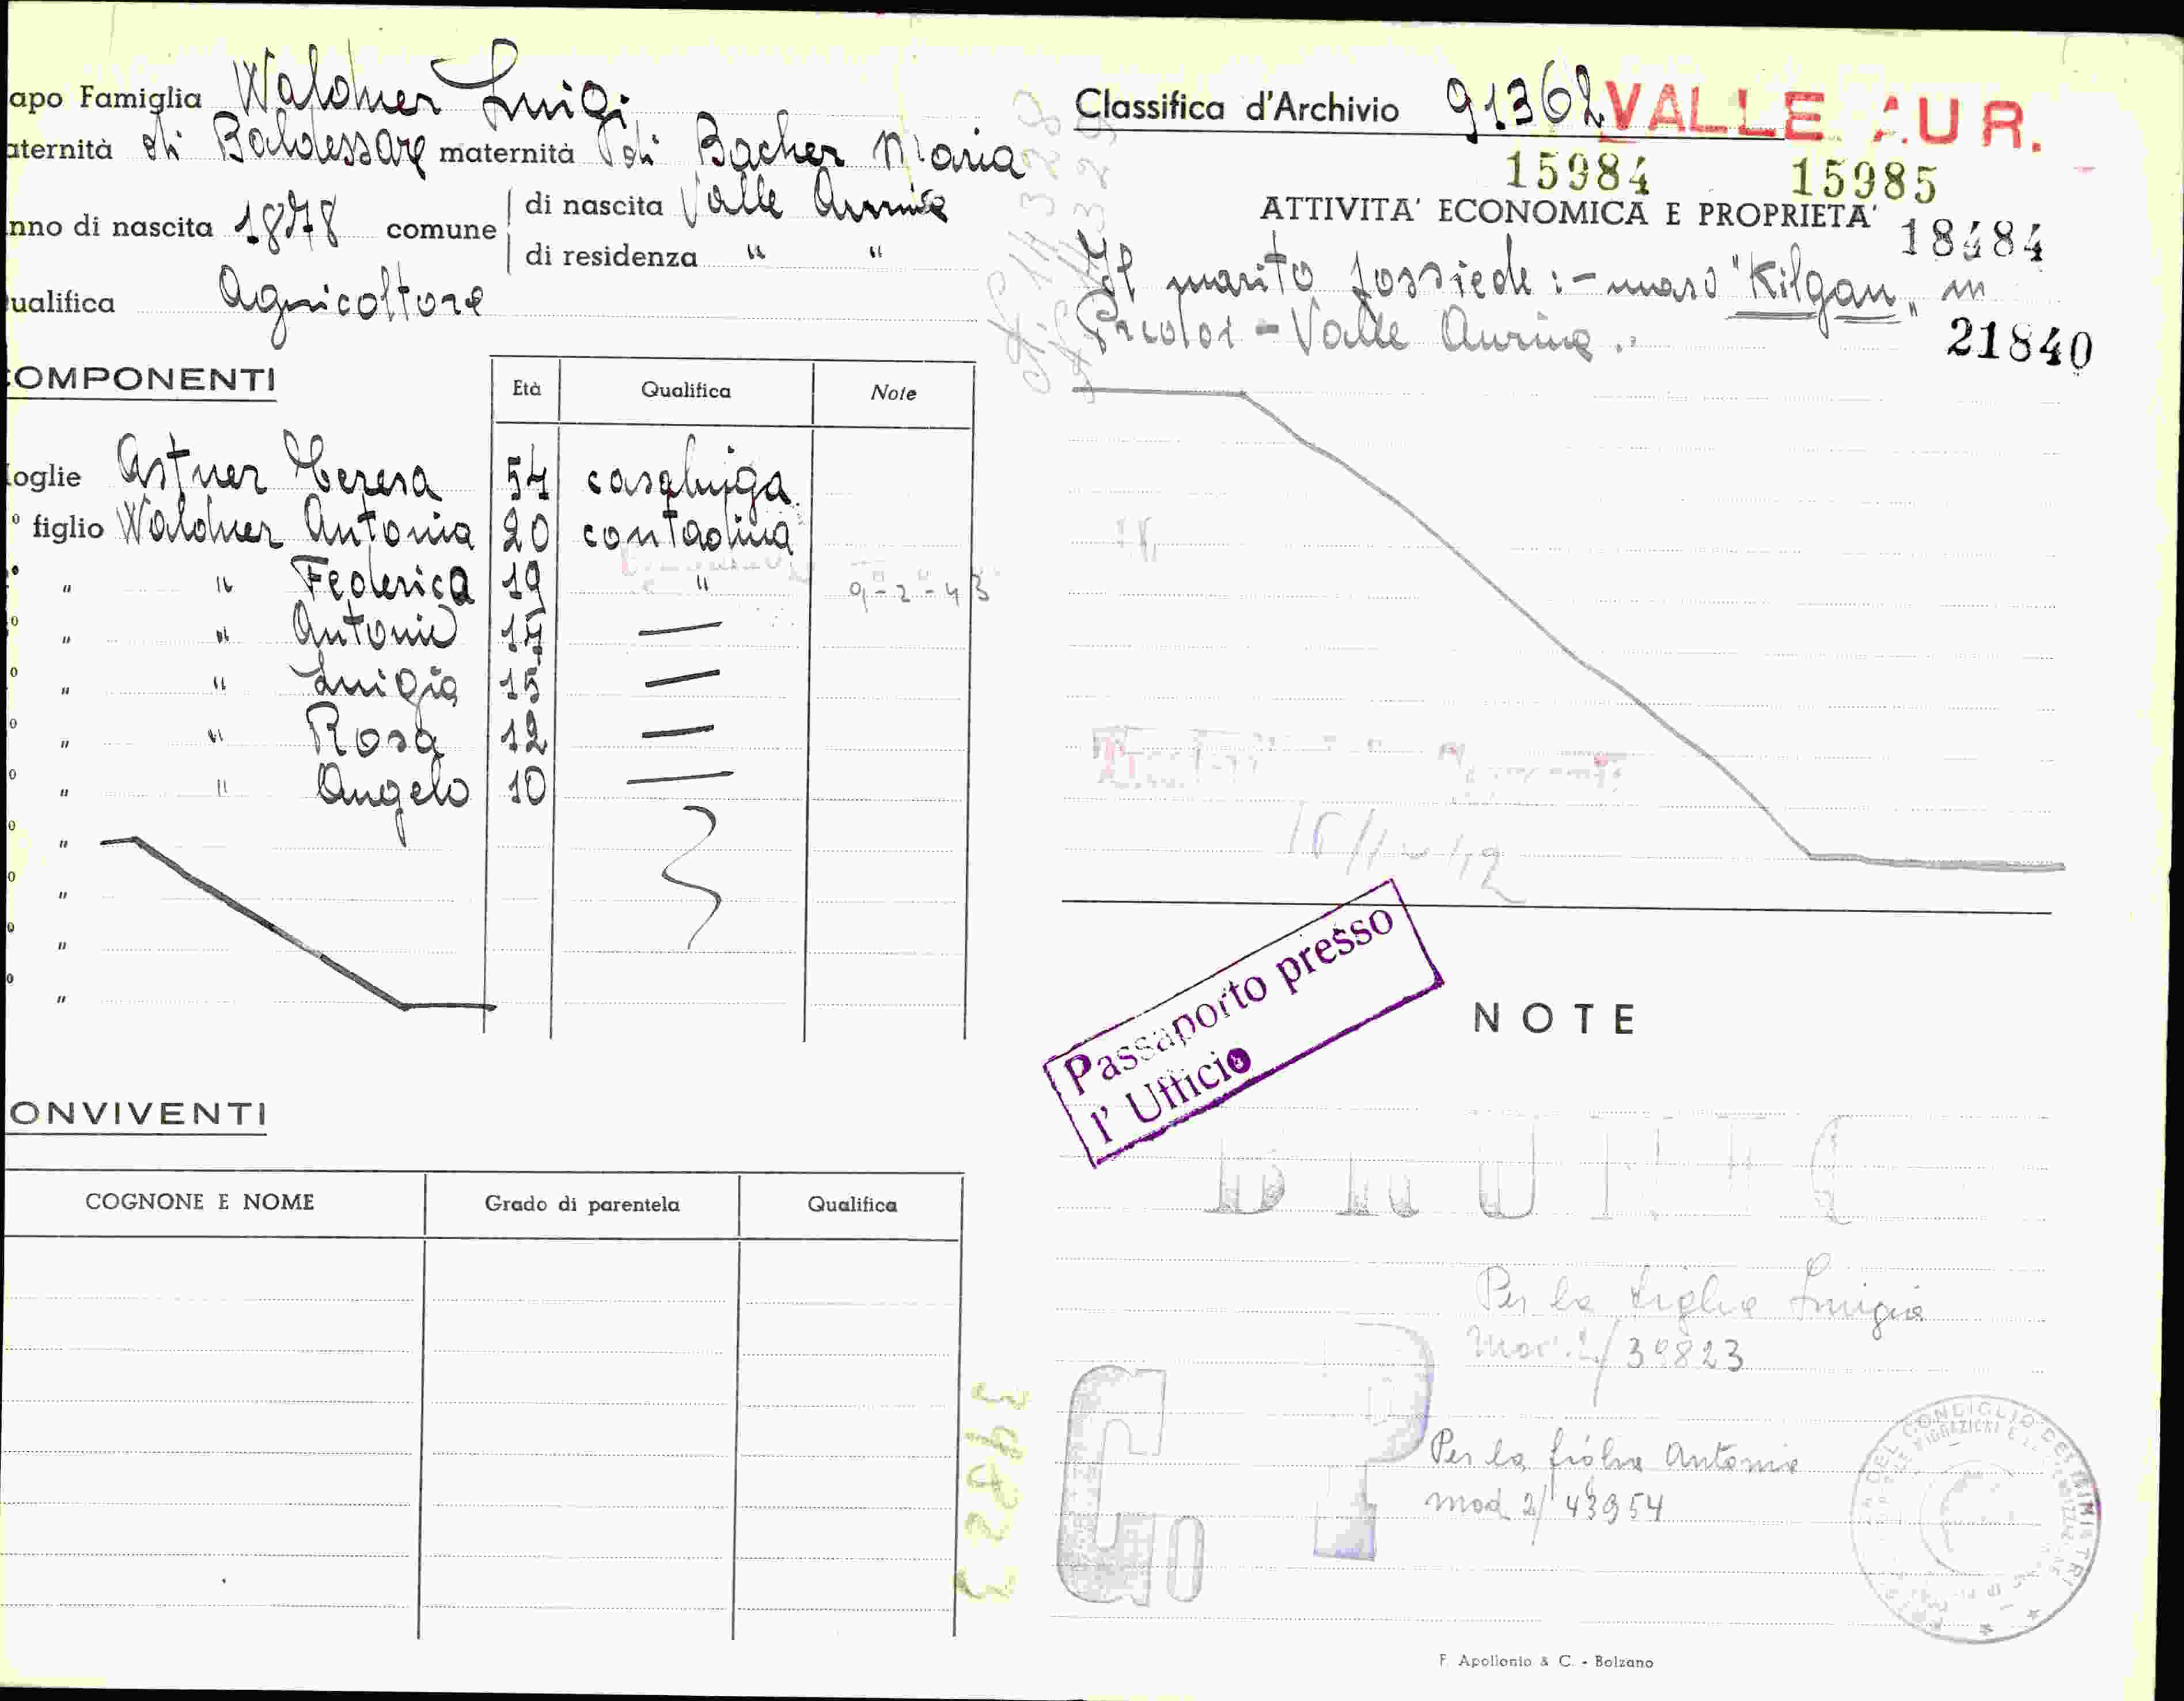 apo Famiglia Waldner Luigi
aternità di Baldessare maternità di Bacher Maria
nno di nascita 1878 comune di nascita Valle Aurina
di residenza " "
ualifica Agricoltore
OMPONENTI
Età Qualifica Note
oglie Astner Teresa 54 casalinga
° figlio Waldner Antonia 20 contadina
° " " Federica 19 " 9-2-43
° " " Antonio
° " " Luigia 15 —
° " " Rosa 12 —
° " " Angelo 10 —
° "
° "
° "
° "
ONVIVENTI
COGNONE E NOME Grado di parentela Qualifica
Classifica d'Archivio 91362 VALLE AUR.
15984 15985
ATTIVITA' ECONOMICA E PROPRIETA' 18484
Il marito possiede:- maso "Kilgan" in
Valle Aurina.
21840
Passaporto presso
l' Ufficio
NOTE
Per la figlia Luigia
39823
Per la figlia Antonia
mod 2/ 43954
39823
F. Apollonio & C. - Bolzano